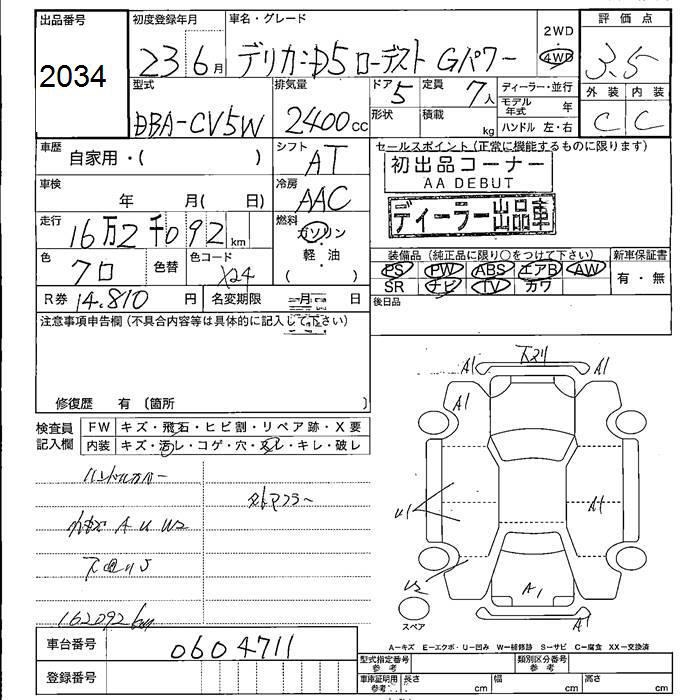 出品番号
2034
初度登録年月
23年6月
車名・グレード
デリカD5 ローデスト Gパワー
2WD
4WD
評価点
3.5
外装 内装
C C
型式
DBA-CV5W
排気量
2400cc
ドア
5
形状
定員
7人
積載
kg
ディーラー・並行
モデル年式 年
ハンドル 左・右
車歴
自家用・( )
シフト
AT
セールスポイント(正常に機能するものに限ります)
初出品コーナー
AA DEBUT
ディーラー出品車
車検
年 月( 日)
冷房
AAC
走行
16万2千092km
燃料
ガソリン
・
軽・油
( )
色
クロ
色替
色コード
X24
装備品(純正品に限り○をつけて下さい)
新車保証書
PS PW ABS エアB AW
SR ナビ TV カワ
有・無
後日品
R券 14.810円
名変期限 月 日
注意事項申告欄(不具合内容等は具体的に記入して下さい)
修復歴 有 〔箇所 〕
検査員記入欄
FW キズ・飛石・ヒビ割・リペア跡・X要
内装 キズ・汚レ・コゲ・穴・スレ・キレ・破レ
ハンドルカバー
外マフラー
A U W2
162092km
下スリ
A1 A1
A1
U1
A1
U2
A1
A1
スペア
A−キズ E−エクボ・U−凹み W−補修跡 S−サビ C−腐食 XX−交換済
車台番号
0604711
登録番号
型式指定番号
参考
類別区分番号
参考
車庫証明用
参考
長さ cm
幅 cm
高さ cm